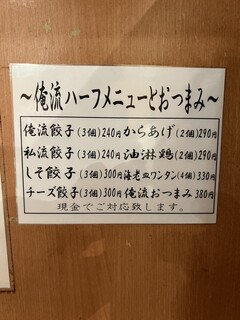 ～俺流ハーフメニューとおつまみ～
俺流餃子(3個)240円 からあげ(2個)290円
私流餃子(3個)240円 油淋鶏(2個)290円
しそ餃子(3個)300円 海老皿ワンタン(4個)330円
チーズ餃子(3個)300円 俺流おつまみ380円
現金でご対応致します。